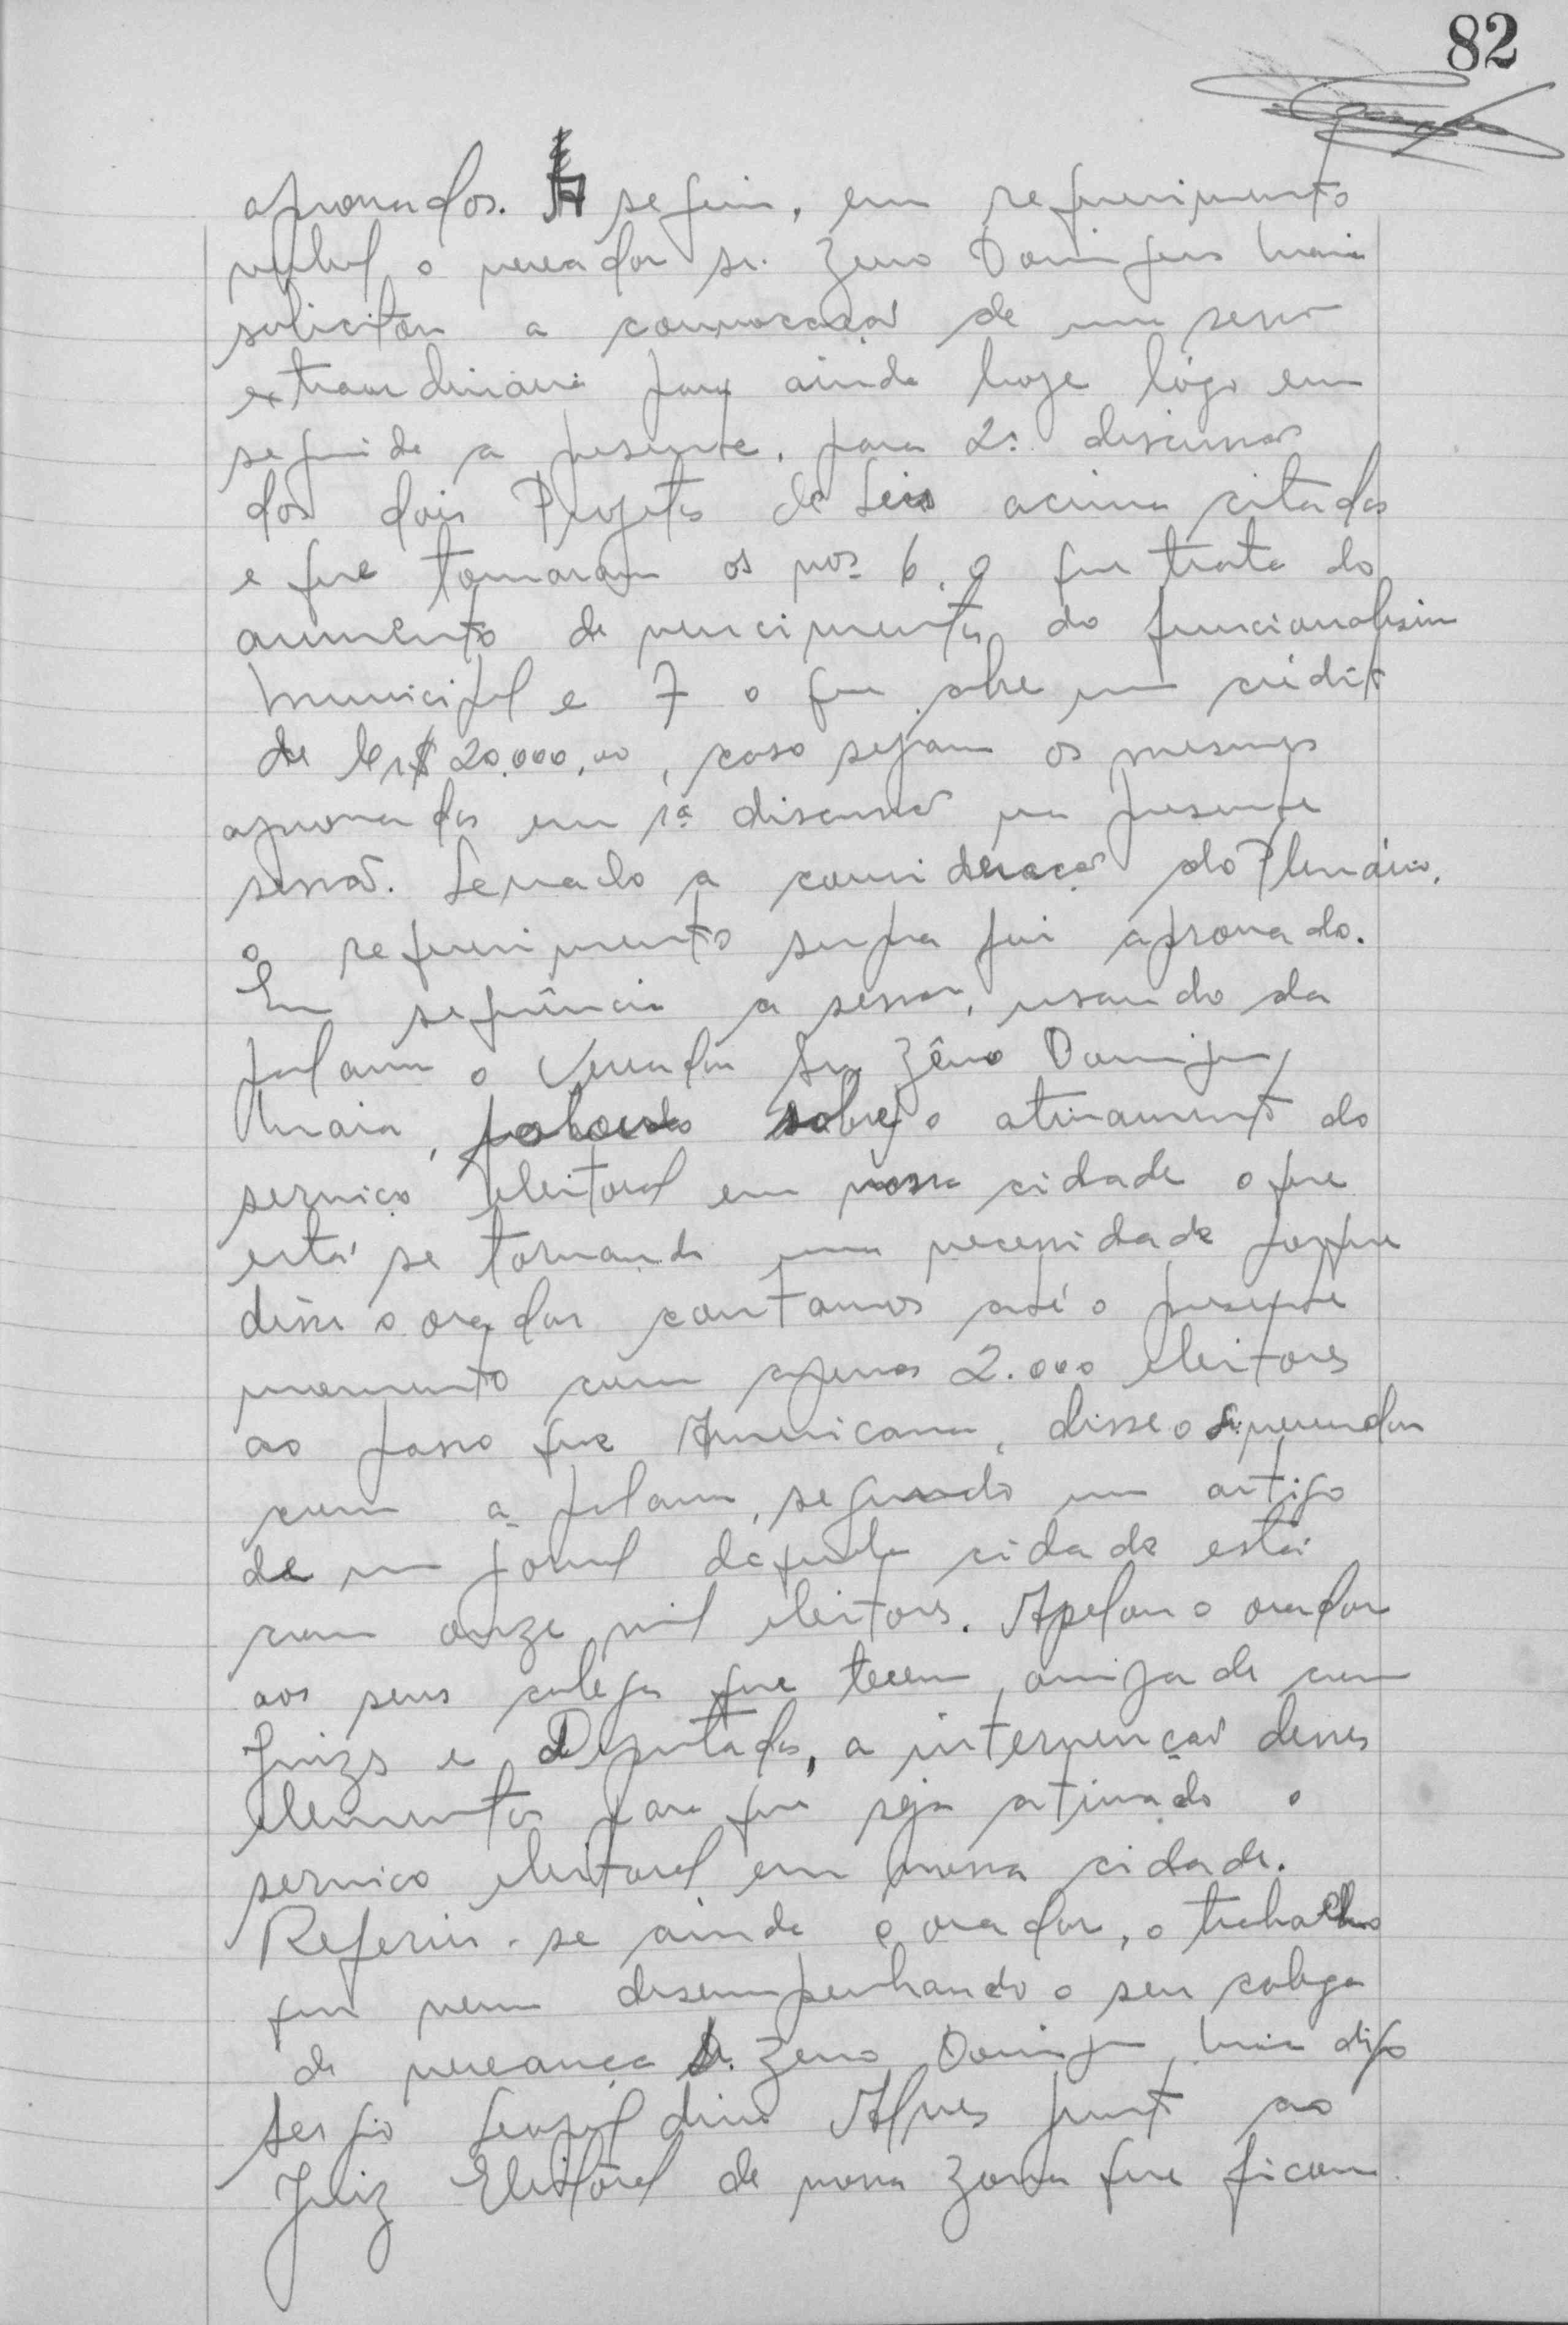 82
aprovados. A seguir, em requerimento
verbal o vereador sr. Zeno Domingues Maia
solicitou a convocação de uma sessão
extraordinária para ainda hoje lógo em
seguida a presente, para 2ª discussão
dos dois Projetos de Leis acima citados
e que tomaram os nos. 6, o que trata do
aumento de vencimentos do funcionalismo
Municipal e 7 o que abre um crédito
de Cr$ 20.000,00, caso sejam os mesmos
aprovados em 1ª discussão na presente
sessão. Levado a consideração do Plenário,
o requerimento supra foi aprovado.
Em sequência a sessão, usando da
palavra o Vereador Sr. Zêno Domingues
Maia, falando sobre o ativamento do
serviço eleitoral em nossa cidade o que
está se tornando uma necessidade porque
disse o orador contamos até o presente
momento com apenas 2.000 eleitores
ao passo que Americana, disse o Sr. vereador
com a palavra, segundo um artigo
de um jornal daquela cidade está
com onze mil eleitores. Apelou o orador
aos seus colegas que tecem amizade com
Juizs e Deputados, a intervenção desses
elementos para que seja ativado o
serviço eleitoral em nossa cidade.
Referiu-se ainda o orador, o trabalho
que vem desempenhando o seu colega
de vereança Sr. Zeno Domingues Maia digo
Sergio Leopoldino Alves junto ao
Juiz Eleitoral de nossa Zona que ficou